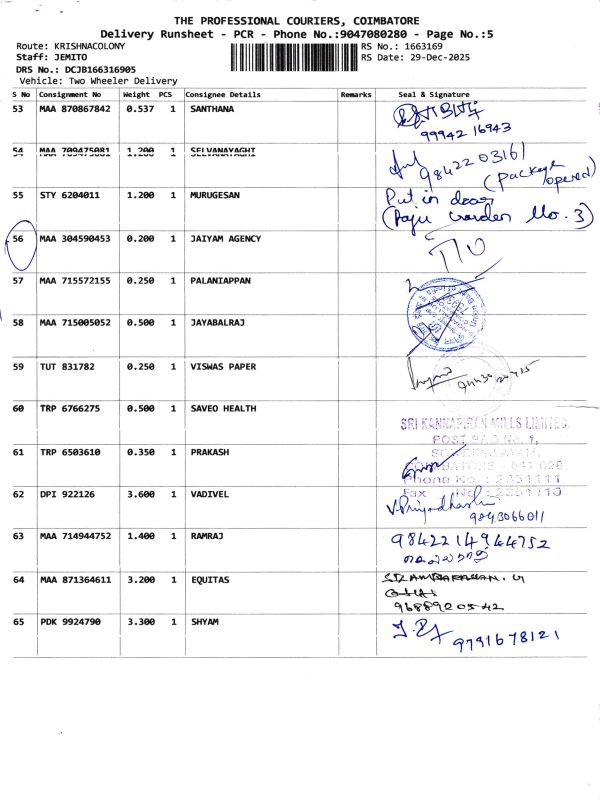 THE PROFESSIONAL COURIERS, COIMBATORE
Delivery Runsheet - PCR - Phone No.:9047080280 - Page No.:5
Route: KRISHNACOLONY
Staff: JEMITO
DRS No.: DCJB166316905
Vehicle: Two Wheeler Delivery
RS No.: 1663169
RS Date: 29-Dec-2025
S No Consignment No Weight PCS Consignee Details Remarks Seal & Signature
53 MAA 870867842 0.537 1 SANTHANA
99942 16943
54 MAA 709475081 1.200 1 SELVANAYAGHI
9842203161
(package opened)
55 STY 6204011 1.200 1 MURUGESAN
Put in door
(Raju Garden No. 3)
56 MAA 304590453 0.200 1 JAIYAM AGENCY
57 MAA 715572155 0.250 1 PALANIAPPAN
58 MAA 715005052 0.500 1 JAYABALRAJ
59 TUT 831782 0.250 1 VISWAS PAPER
60 TRP 6766275 0.500 1 SAVEO HEALTH
SRI KANNAPIRAN MILLS LIMITED
POST BAG No. 1,
61 TRP 6503610 0.350 1 PRAKASH
COIMBATORE - 641 028
Phone No. : 2331111
Fax No. : 2331110
62 DPI 922126 3.600 1 VADIVEL
V. Priyadharshini
9843066011
63 MAA 714944752 1.400 1 RAMRAJ
98422149 44752
64 MAA 871364611 3.200 1 EQUITAS
9688920542
65 PDK 9924790 3.300 1 SHYAM
9791678121